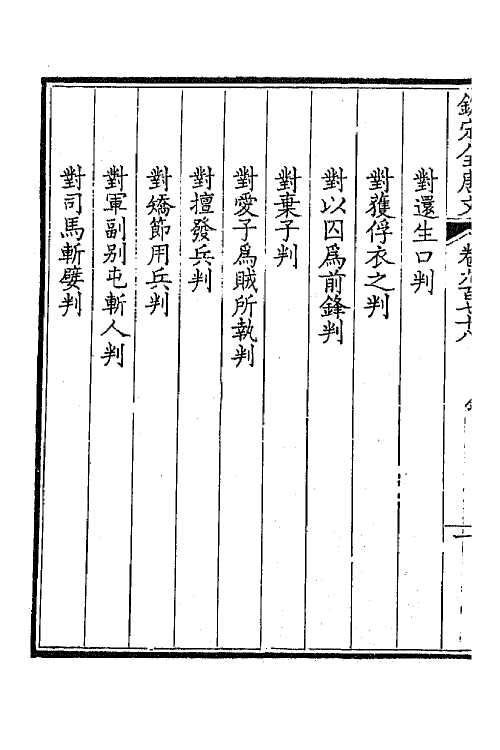 欽定全唐文 卷九百七十八
對還生口判
對獲俘衣之判
對以囚爲前鋒判
對棄子判
對愛子爲賊所執判
對擅發兵判
對矯節用兵判
對軍副别屯斬人判
對司馬斬嬖判